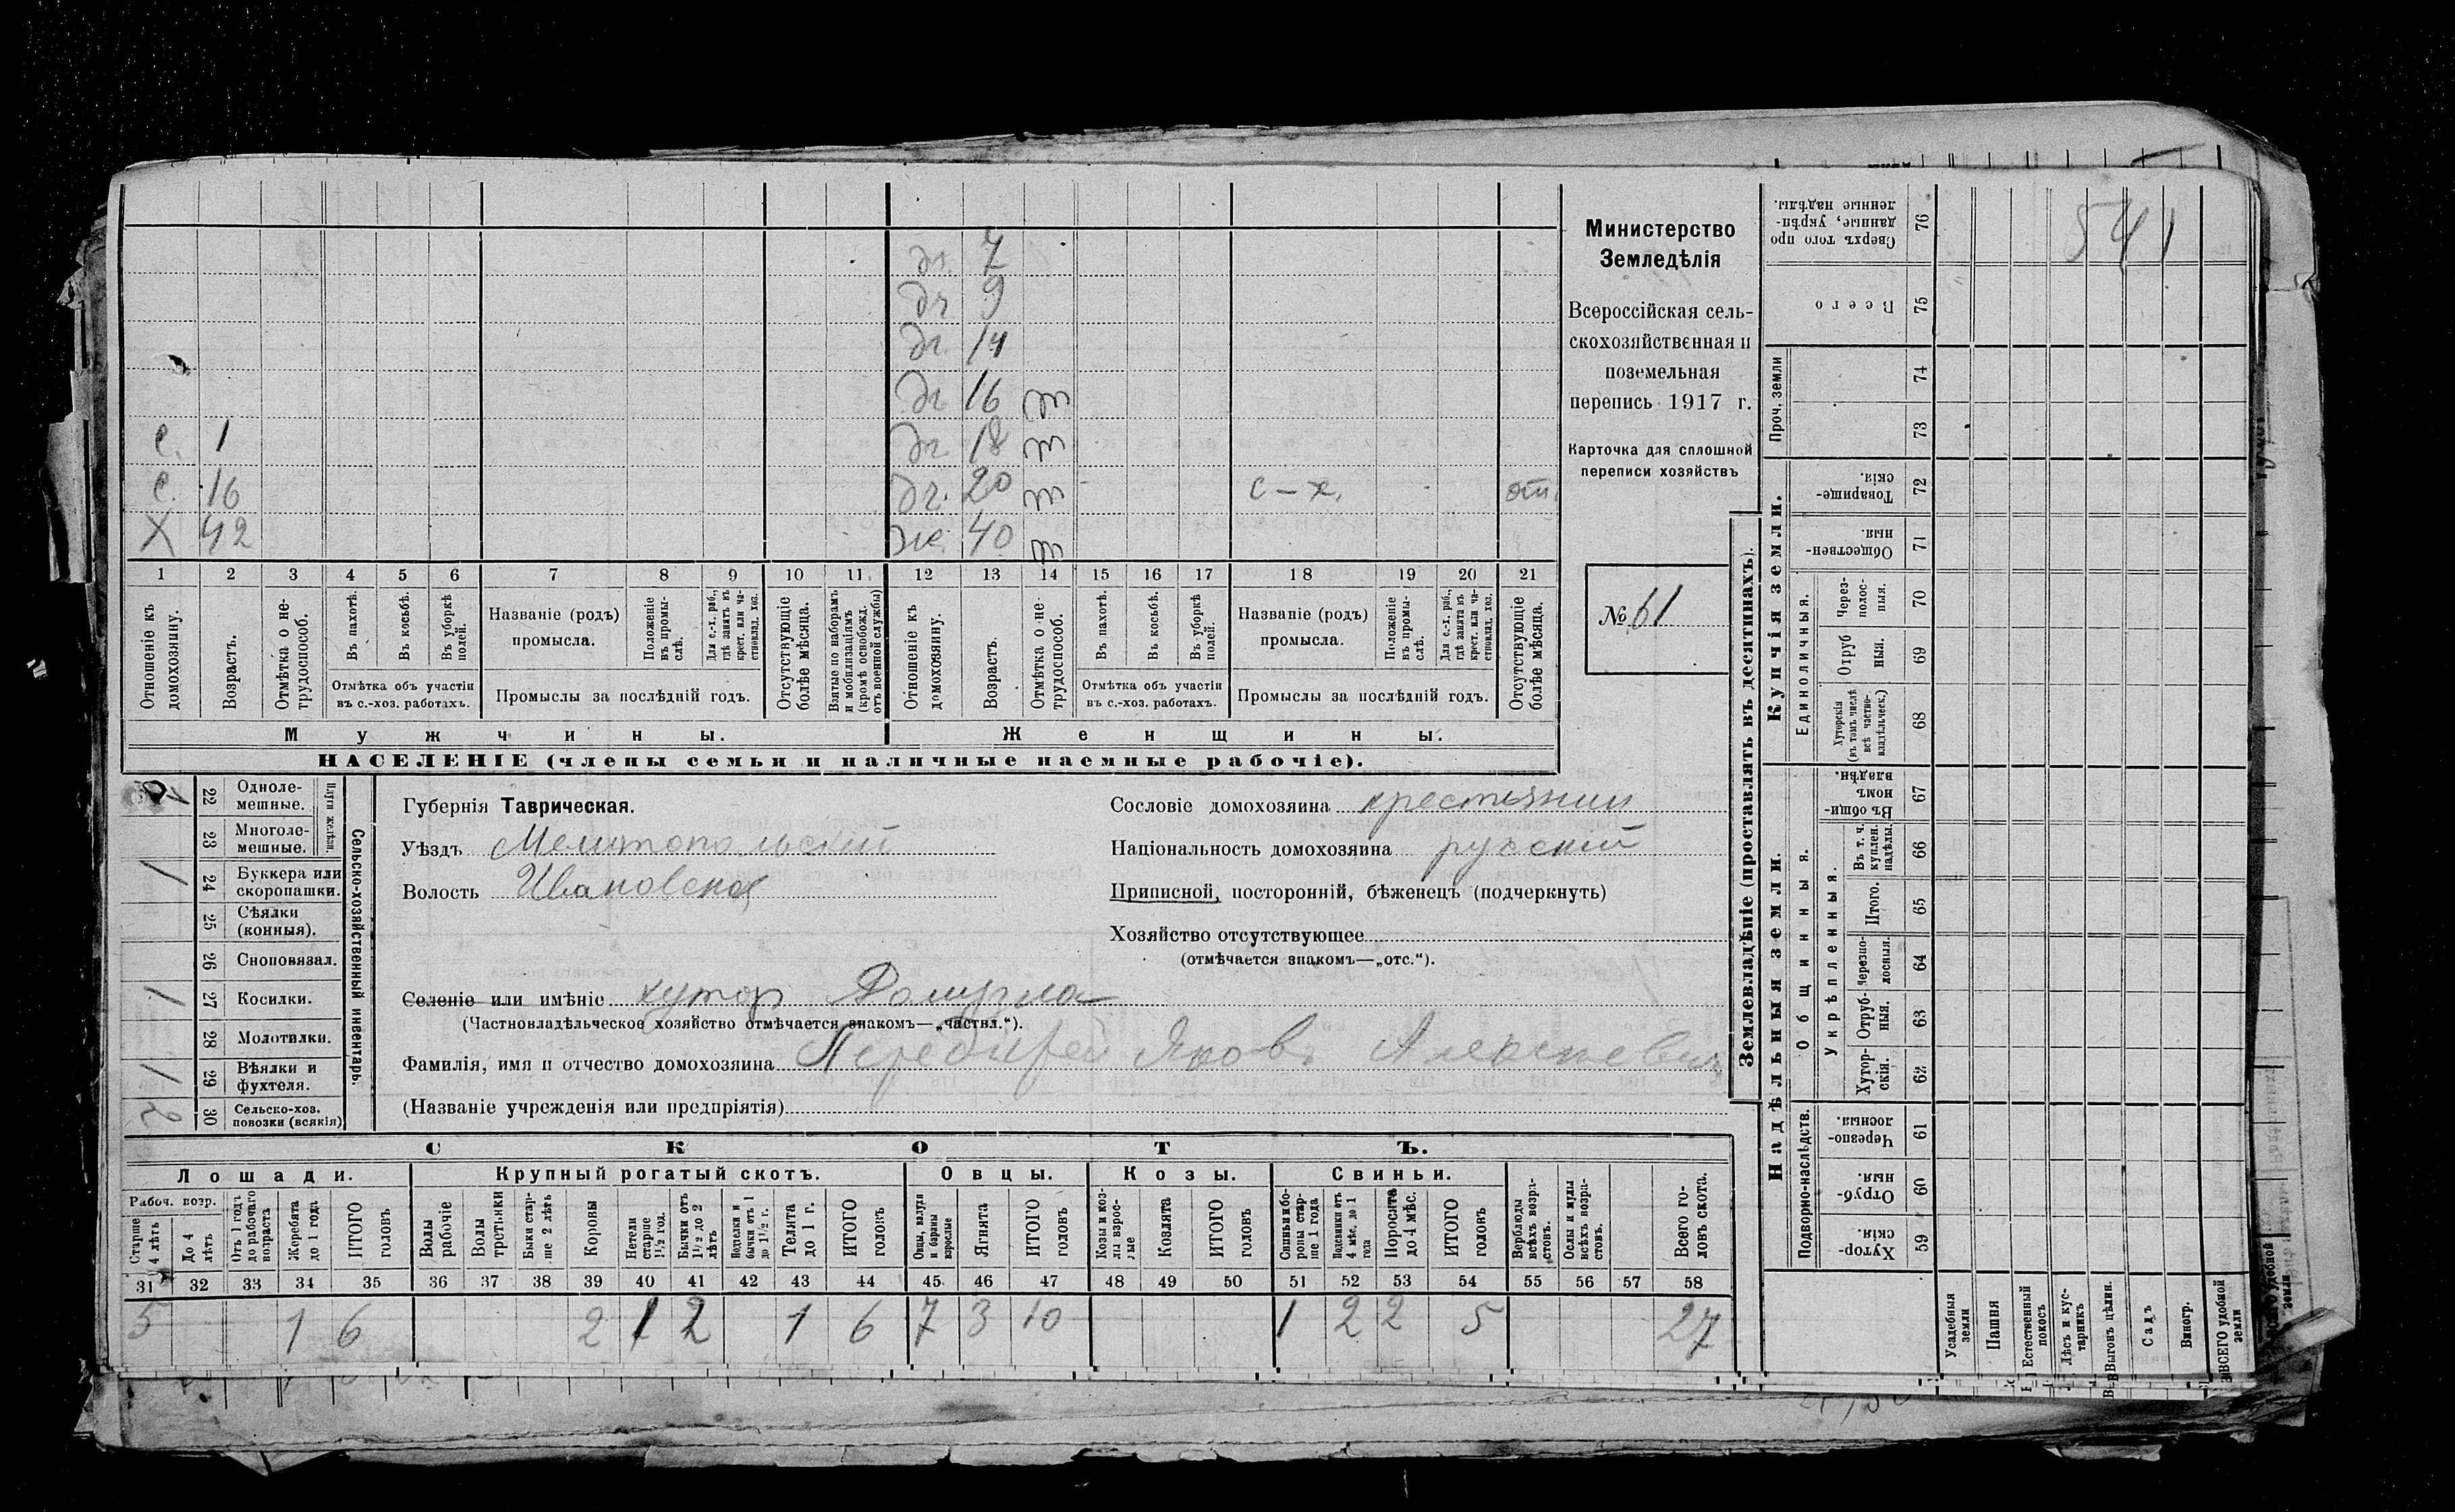 541
Министерство
Земледѣлія
Всероссійская сель-
скохозяйственная и
поземельная
перепись 1917 г.
Карточка для сплошной
переписи хозяйствъ
№ 61
дч. 7
дч 9
дч. 14
дч 16 т
с. 1 дч. 18 т
с. 16 дч. 20 т с-х. от.
Х 42 ж. 40 т
1 2 3 4 5 6 7 8 9 10 11. 12 13 14 15 16 17 18 19 20 21
Отношеніе къ домохозяину.
Возрастъ.
Отмѣтка о не-трудоспособ.
Въ пахотѣ.
Въ косьбѣ.
Въ уборкѣ полей.
Отмѣтка объ участіи
въ с.-хоз. работахъ.
Названіе (родъ)
промысла.
Положеніе въ промы-слѣ.
Для с.-х. раб., гдѣ занятъ въ крест. или ча-стновлад. хоз.
Промыслы за послѣдній годъ.
Отсутствующіе болѣе мѣсяца.
Взятые по наборамъ и мобилизаціямъ (кромѣ освобожд. отъ военной службы)
Отношеніе къ домохозяину.
Возрастъ.
Отмѣтка о не-трудоспособ.
Въ пахотѣ.
Въ косьбѣ.
Въ уборкѣ полей.
Отмѣтка объ участіи
въ с.-хоз. работахъ.
Названіе (родъ)
промысла.
Положеніе въ промы-слѣ.
Для с.-х. раб., гдѣ занята въ крест. или ча-стновлад. хоз.
Промыслы за послѣдній годъ.
Отсутствующіе болѣе мѣсяца.
Мужчины. Женщины.
НАСЕЛЕНІЕ (члены семьи и наличные наемные рабочіе).
Сельско-хозяйственный инвентарь.
Плуги желѣзн.
1 22 Одноле-мешные.
23 Многоле-мешные.
1 24 Буккера или скоропашки.
25 Сѣялки (конныя).
26 Сноповязал.
1 27 Косилки.
28 Молотилки.
1 29 Вѣялки и фухтеля.
2 30 Сельско-хоз. повозки (всякія)
Губернія Таврическая.
Уѣздъ Мелитопольскій
Волость Ивановская
Сословіе домохозяина крестьянин
Національность домохозяина русскій
Приписной, посторонній, бѣженецъ (подчеркнуть)
Хозяйство отсутствующее
(отмѣчается знакомъ—„отс.“).
Селеніе или имѣніе хутор
(Частновладѣльческое хозяйство отмѣчается знакомъ—„частвл.“).
Фамилія, имя и отчество домохозяина Яковъ Алексѣевич
(Названіе учрежденія или предпріятія)
СКОТЪ.
Лошади. Крупный рогатый скотъ. Овцы. Козы. Свиньи.
Рабоч. возр.
Старше 4 лѣтъ
До 4 лѣтъ
Отъ 1 года до рабочаго возраста
Жеребята до 1 года
ИТОГО головъ
Волы рабочіе
Волы третьяки
Быки стар-ше 2 лѣтъ
Коровы
Нетели старше 1½ год.
Бычки отъ 1½ до 2 лѣтъ
Подтелки и бычки отъ 1 до 1½ г.
Телята до 1 г.
ИТОГО головъ
Овцы, валухи и бараны взрослые
Ягнята
ИТОГО головъ
Козы и коз-лы взрос-лые
Козлята
ИТОГО головъ
Свиньи и бо-ровы стар-ше 1 года
Подсвинки отъ 4 мѣс. до 1 года
Поросята до 4 мѣс.
ИТОГО головъ
Верблюды всѣхъ возра-стовъ.
Ослы и мулы всѣхъ возра-стовъ.
Всего го-ловъ скота.
31 32 33 34 35 36 37 38 39 40 41 42 43 44 45 46 47 48 49 50 51 52 53 54 55 56 57 58
5 1 6 2 1 2 1 6 7 3 10 1 2 2 5 27
Землевладѣніе (проставлять въ десятинахъ).
Надѣльныя земли. Купчія земли.
Подворно-наслѣдств.
Общинныя.
Укрѣпленныя.
Единоличныя.
Проч. земли
59 Хутор-скія.
60 Отруб-ныя.
61 Черезпо-лосныя.
62 Хутор-скія.
63 Отруб-ныя.
64 Черезпо-лосныя.
65 Итого.
66 Въ т. ч. куплен. надѣлы.
67 Въ общи-номъ владѣн.
68 Хуторскія (въ томъ числѣ всѣ частно-владѣльческ.)
69 Отруб ныя.
70 Через-полос-ныя.
71 Обществен-ныя.
72 Товарище-скія.
73
74
75 Всего
76 Сверхъ того про данные, укрѣп-ленные надѣлы.
Усадебныя земли
Пашня
Естественный покосъ
Лѣсъ и кус-тарникъ
Выгонъ цѣлин.
Садъ
Виногр.
ВСЕГО удобной земли